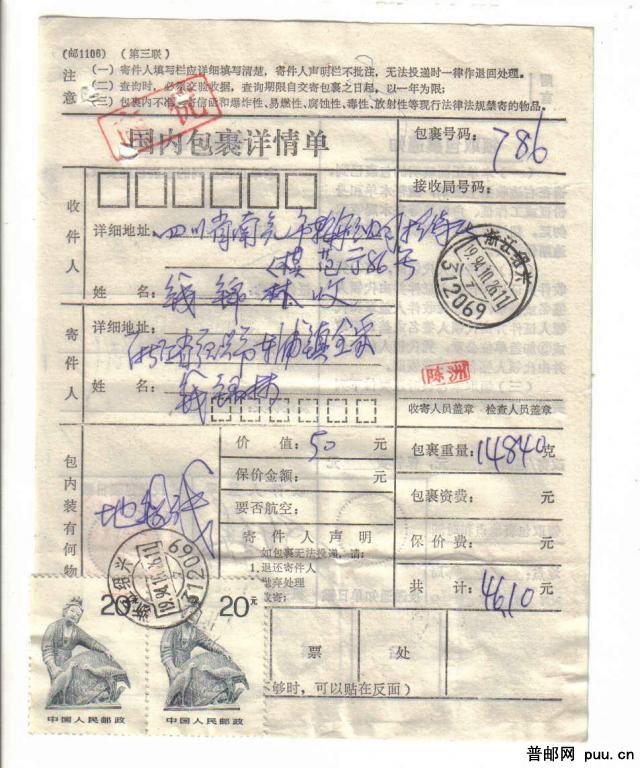 (邮1106) (第三联)
注意
(一) 寄件人填写栏应详细填写清楚,寄件人声明栏不批注,无法投递时一律作退回处理。
(二) 查询时,必须交验收据,查询期限自交寄包裹之日起,以一年为限;
(三) 包裹内不准寄信函和爆炸性、易燃性、腐蚀性、毒性、放射性等现行法律法规禁寄的物品。
国内包裹详情单
包裹号码: 786
接收局号码:
收件人
详细地址: 四川省南充市
模范街86号
姓名: 钱锦林收
寄件人
详细地址:
浙江省绍兴市东浦镇
姓名: 钱锦林
陈洲
收寄人员盖章 检查人员盖章
浙江绍兴
19.94.10.26.17
312069
包内装有何物
价值: 50 元
保价金额: 元
要否航空:
寄件人声明
如包裹无法投递,请:
1.退还寄件人
抛弃处理
改寄:
包裹重量: 14840 克
包裹资费: 元
保价费: 元
共计: 46.10 元
浙江绍兴
312069
20元
中国人民邮政
20元
中国人民邮政
票 处
不够时,可以贴在反面)
普邮网 puu.cn